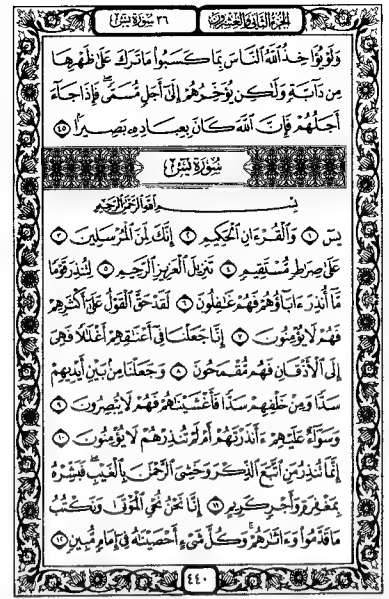 الجزء الثاني والعشرون
٣٦ سورة يس
وَلَوْ يُؤَاخِذُ ٱللَّهُ ٱلنَّاسَ بِمَا كَسَبُواْ مَا تَرَكَ عَلَىٰ ظَهْرِهَا
مِن دَآبَّةٍ وَلَٰكِن يُؤَخِّرُهُمْ إِلَىٰٓ أَجَلٍ مُّسَمًّى ۖ فَإِذَا جَآءَ
أَجَلُهُمْ فَإِنَّ ٱللَّهَ كَانَ بِعِبَادِهِۦ بَصِيرًۢا ٤٥
سورة يس
بِسْمِ ٱللَّهِ ٱلرَّحْمَٰنِ ٱلرَّحِيمِ
يسٓ ١ وَٱلْقُرْءَانِ ٱلْحَكِيمِ ٢ إِنَّكَ لَمِنَ ٱلْمُرْسَلِينَ ٣
عَلَىٰ صِرَٰطٍ مُّسْتَقِيمٍ ٤ تَنزِيلَ ٱلْعَزِيزِ ٱلرَّحِيمِ ٥ لِتُنذِرَ قَوْمًا
مَّآ أُنذِرَ ءَابَآؤُهُمْ فَهُمْ غَٰفِلُونَ ٦ لَقَدْ حَقَّ ٱلْقَوْلُ عَلَىٰٓ أَكْثَرِهِمْ
فَهُمْ لَا يُؤْمِنُونَ ٧ إِنَّا جَعَلْنَا فِىٓ أَعْنَٰقِهِمْ أَغْلَٰلًا فَهِىَ
إِلَى ٱلْأَذْقَانِ فَهُم مُّقْمَحُونَ ٨ وَجَعَلْنَا مِنۢ بَيْنِ أَيْدِيهِمْ
سَدًّا وَمِنْ خَلْفِهِمْ سَدًّا فَأَغْشَيْنَٰهُمْ فَهُمْ لَا يُبْصِرُونَ ٩
وَسَوَآءٌ عَلَيْهِمْ ءَأَنذَرْتَهُمْ أَمْ لَمْ تُنذِرْهُمْ لَا يُؤْمِنُونَ ١٠
إِنَّمَا تُنذِرُ مَنِ ٱتَّبَعَ ٱلذِّكْرَ وَخَشِىَ ٱلرَّحْمَٰنَ بِٱلْغَيْبِ ۖ فَبَشِّرْهُ
بِمَغْفِرَةٍ وَأَجْرٍ كَرِيمٍ ١١ إِنَّا نَحْنُ نُحْىِ ٱلْمَوْتَىٰ وَنَكْتُبُ
مَا قَدَّمُواْ وَءَاثَٰرَهُمْ ۚ وَكُلَّ شَىْءٍ أَحْصَيْنَٰهُ فِىٓ إِمَامٍ مُّبِينٍ ١٢
٤٤٠